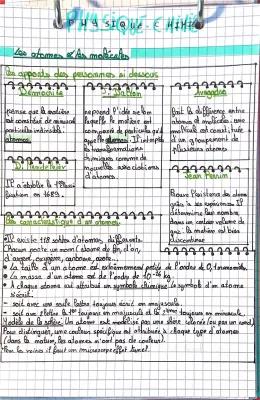 PHYSIQUE CHIMIE
Les atomes et les molécules
Les apports des personnes ci dessous
Démocrite
J. Dalton
Avogadro
pense que la matière
est constitué de minuscule
particules invisible:
atomes.
reprend l'idée selon
laquelle la matière est
composée de particules
atomes. Il interprète
les transformations
chimiques comme de
nouvelles associations
d'atomes.
fait la différence entre
atomes et molécules: une
molécule est constituée
d'un groupement de
plusieurs atomes
D. Mendeleïev
Il a établie la classi-
fication en 1869.
Jean Perrin
Prouve l'existence des atomes
grâce à ses expériences. Il
détermine leur nombre
dans un certain volume de
gaz: la matière est bien
discontinue
Les caractéristiques d'un atome
Il existe 118 sortes d'atomes, différents.
Chaque porte un nom (atome de fer, d'or,
d'argent, oxygène, carbone, ...
• La taille d'un atome est extrêmement petite de l'ordre de 0,1 nanomètre.
• La masse d'un atome est de l'ordre de 10⁻²⁶ kg.
• À chaque atome est attribué un symbole chimique. Le symbole d'un atome
s'écrit:
- soit avec une seule lettre toujours écrit en majuscule.
- soit avec 2 lettre la 1ère toujours en majuscule et la 2ème toujours en minuscule.
Modèle de la sphère: Un atome est modélisé par une sphère colorée (ou par un rond)
Pour distinguer, une couleur spécifique est attribuée à chaque type d'atomes
(dans la nature, les atomes n'ont pas de couleur).
Pour les voir il faut un microscope effet tunnel.